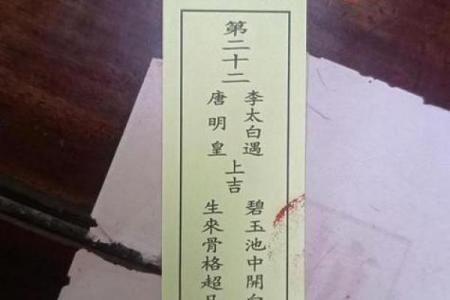 第二十二
李太白遇
唐明皇
上吉
碧玉池中開白
生來骨格超凡